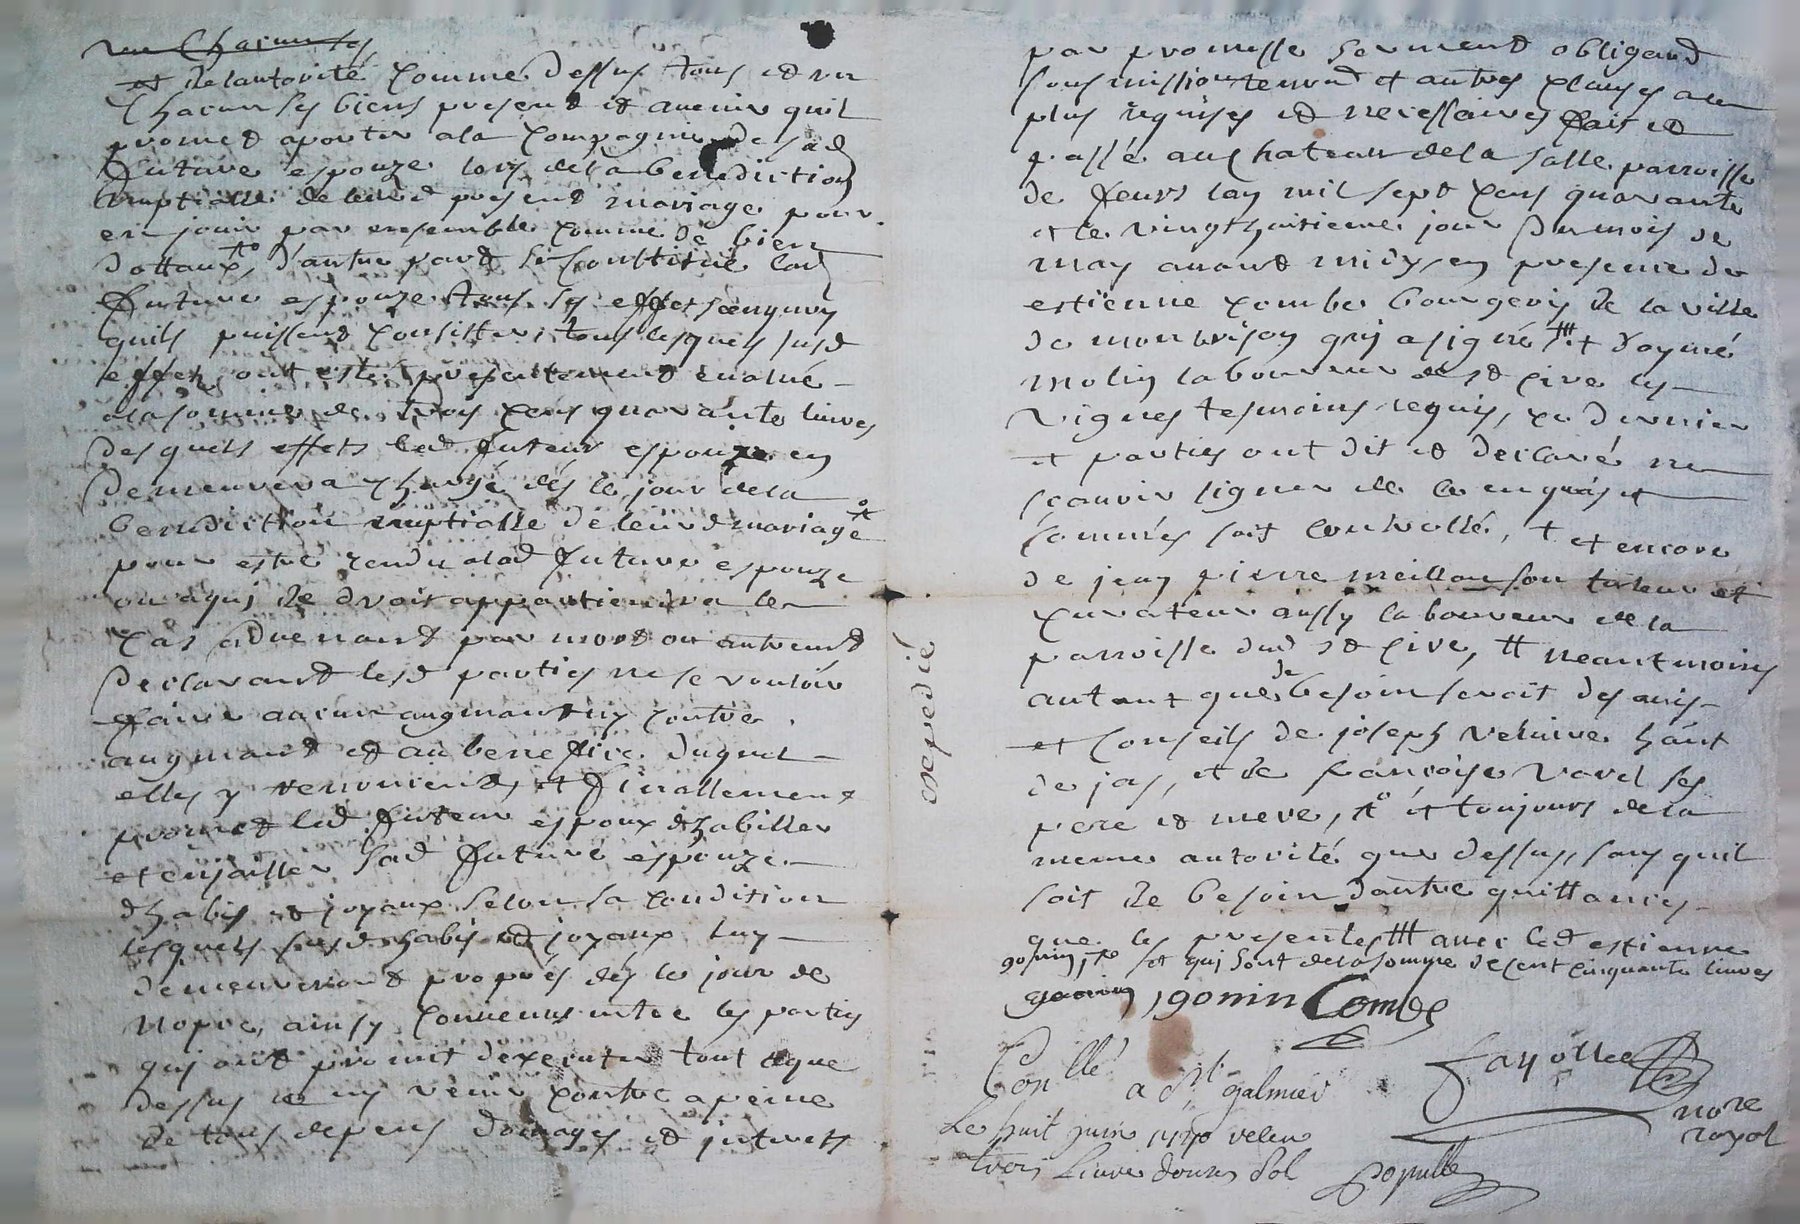 un Chacun ses
et delautorité Comme dessus tous et un
Chacun ses biens present et auenir quil
promet aporter ala Compagnie de sad
future espouze lors dela benediction
nuptialle de leurd present mariage pour
en jouir par ensemble Comme de bien
dottaux, to dautre part se Constitue lad
future espouze tous ses effets enquoy
quils puissent Consister, tous lesquels susd
effets ont esté presentement eualué
ala somme de trois Cens quarante liures
des quels effets led futeur espoux en
demeurera Chargé dés le jour dela
benediction nuptialle de leurd mariage
pour estre rendu alad future espouze
ou aquj de droit appartiendra le
Cas aduenant par mort ou autremt
declarant lesd parties ne se vouloir
faire aucun augmant ny Contre
augmant et au benefice duquel
elles y renoncent, et finallement
promet led futeur espoux dhabiller
et enjailler sad future espouze
dhabis et joyaux selon sa Condition
lesquels susd habis et joyaux luy
demeureront propres dés le jour de
nopce, ainsy Conuenus entre les parties
quj ont promit dexecuter tout ceque
dessus ne ny venir Contre apeine
de tous depens domages et interets
expedié
par promesse serment obligeant
sousmission renon et autres Clauses ala
plus requises et necessaires fait et
passé au Chateau dela salle parroisse
de feurs lan mil sept Cens quarante
et le vingt huitieme jour du mois de
may auant midy, en presence de
estienne Combe bourgeois de la ville
de montbrison quj a signé, et
molin laboureur de st Cire les
vignes tesmoins requis, Ce dernier
et parties ont dit et declaré ne
scauoir signer de ce enquis et
sommés soit Controllé, + et encore
de jean pierre meillan son tuteur et
Curateur aussy laboureur dela
parroisse dud st Cire, tt neantmoins
autant que de besoin seroit des auis
et Conseils de joseph veluire hant
de jas, et de francoise varel ses
pere et mere, to et toujours dela
meme autorité que dessus, sans quil
soit de besoin dautre quittances
que les presentes ttt auec led estienne
gonin, et quj sont dela somme de cent cinquante liures
gonin gonin Combe
Conllé a St galmier
Le huit juin 1740
trois Liure douze Sol
fayolle
nore
royal